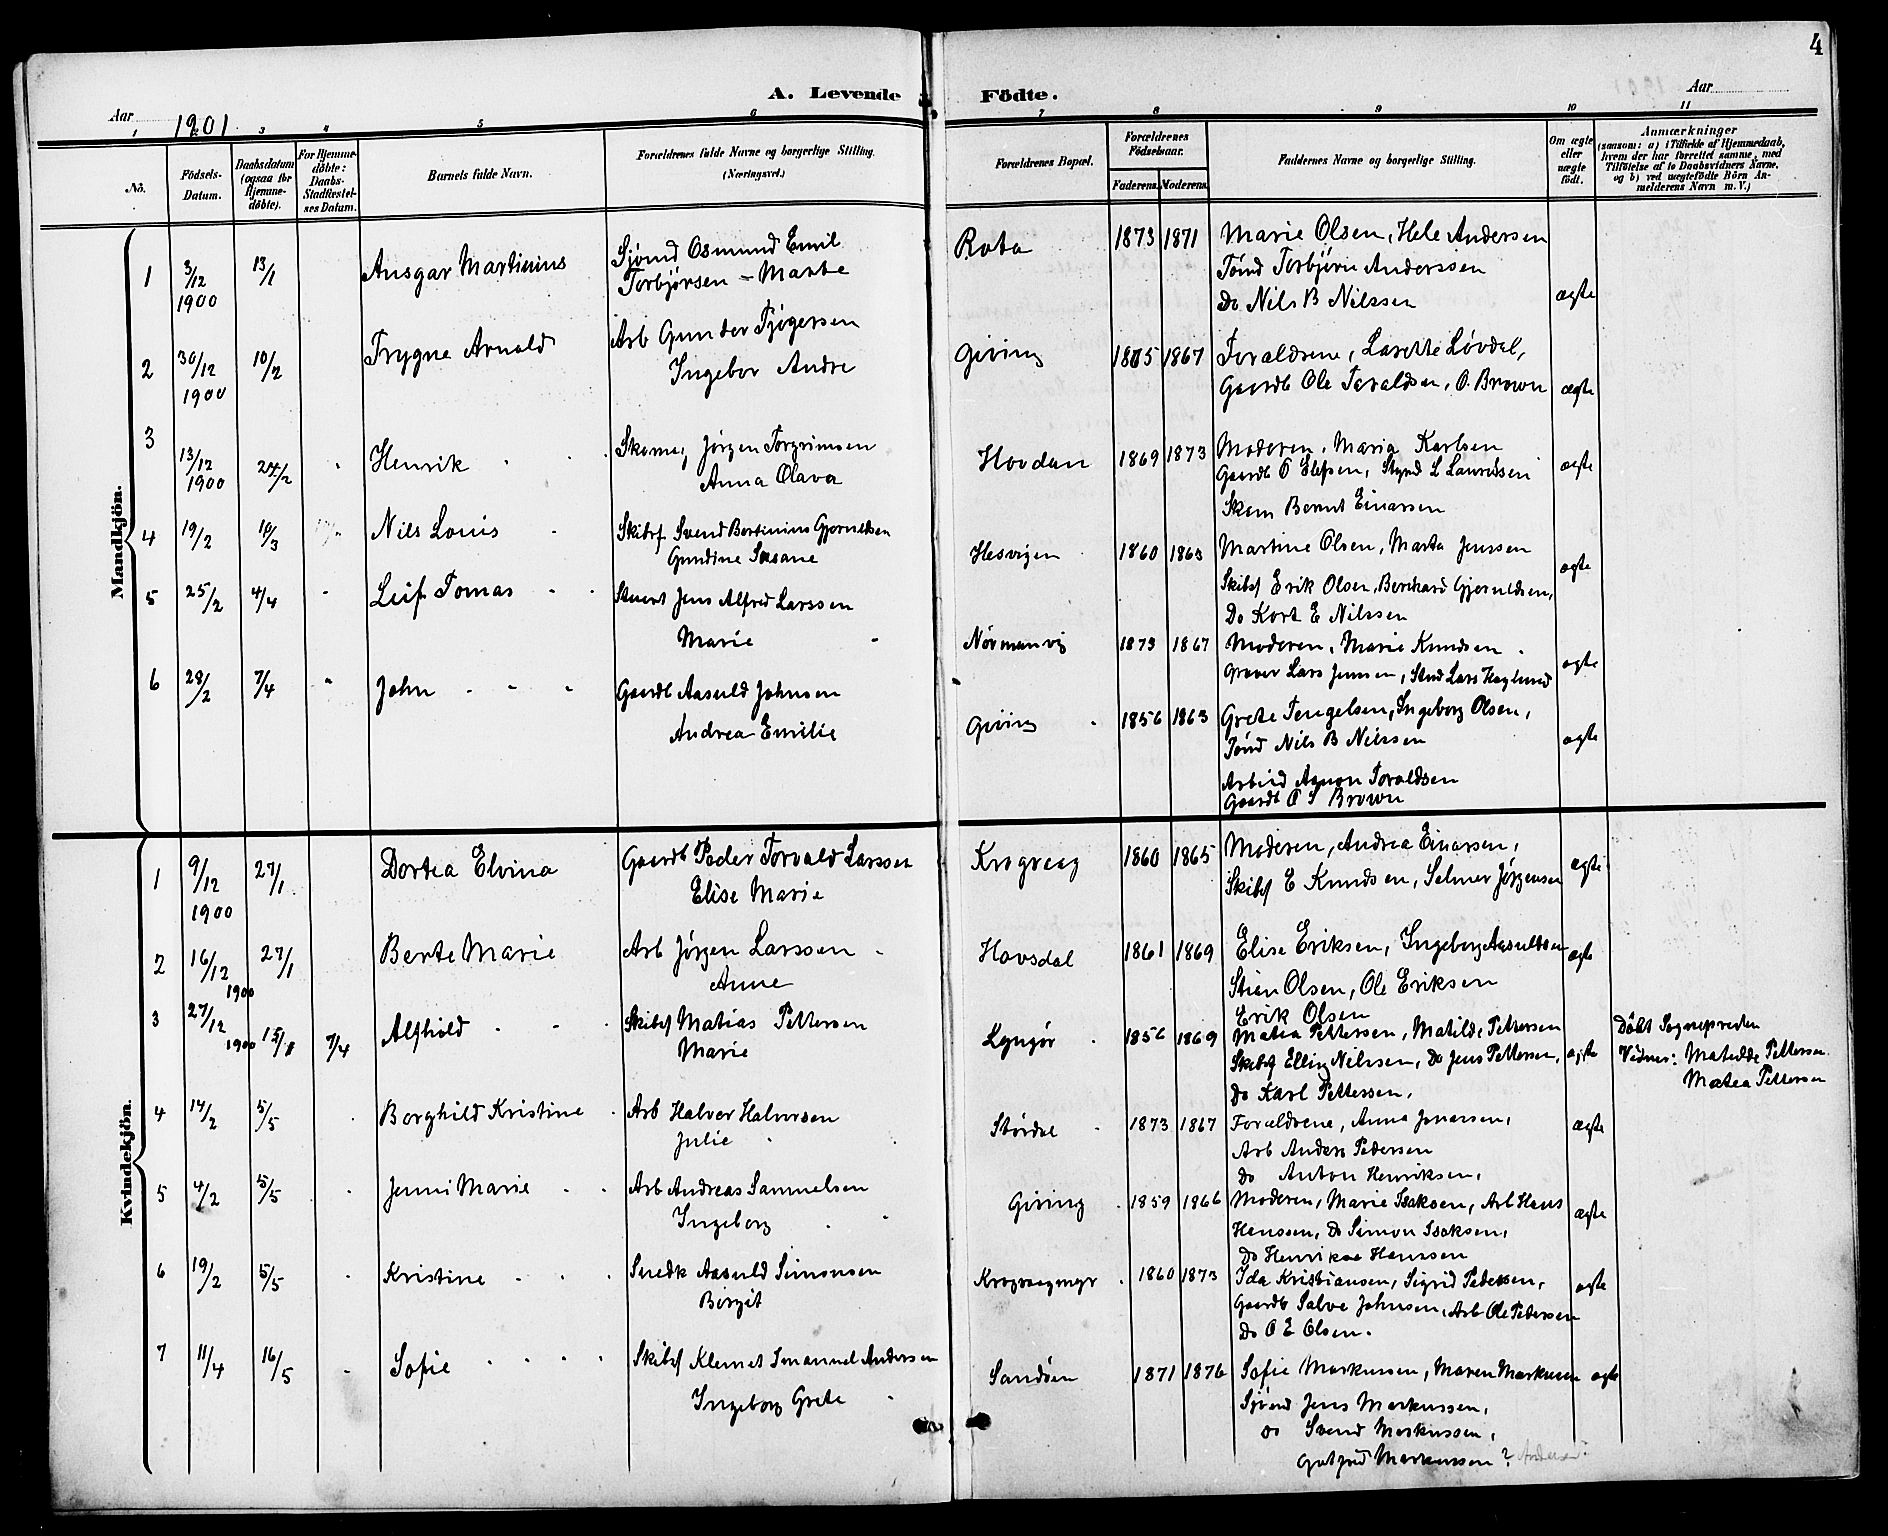 4
A. Levende Födte.
Aar 1901
Aar
1 3 4 5 6 7 8 9 10 11
No.
Födsels-Datum.
Daabsdatum (ogsaa for Hjemme-döbte).
For Hjemme-döbte: Daabs-Stadfæstelses Datum.
Barnets fulde Navn.
Forældrenes fulde Navne og borgerlige Stilling. (Næringsvei.)
Forældrenes Bopæl.
Forældrenes Födselsaar.
Faderens. Moderens.
Faddernes Navne og borgerlige Stilling.
Om ægte eller uægte födt.
Anmærkninger
(saasom: a) i Tilfælde af Hjemmedaab, hvem der har forrettet samme, med Tilföielse af to Daabsvidners Navne, og b) ved uægtefödte Börn Anmelderens Navn m. V.)
Mandkjön.
1 3/12 1900 13/1 Ansgar Martinius
Sjømd Osmund Emil
Torbjørsen - Marte
Rota 1873 1871
Marie Olsen, Hele Andersen
Tømd Torbjørn Anderssen
Do Nils B Nilssen
ægte
2 30/12 1900 10/2 Trygne Arnold
Arb Gunder Tjøgersen
Ingebor Andre
Giving 1865 1867
Foraldrene, Lasette Løvdal,
Gaardb Ole Tevaldsen, O. Brown
ægte
3 13/12 1900 24/2 Henrik
Skomag Jørgen Torgrimsen
Anna Olava
Hovdan 1869 1873
Moderen, Maria Karlsen
Gaardb O Elefsen, Styrd L Lauredsen
Skom Bernt Einarsen
ægte
4 19/2 10/3 Nils Louis
Skibsf Svend Bertinius Gjeruldsen
Gundine Susane
Hesvigen 1860 1863
Martine Olsen, Marta Jenssen
Skibsf Erik Olsen, Bernhard Gjeruldsen,
Do Kort E Nilssen
ægte
5 25/2 4/4 Leif Tomas
Stuert Jens Alfred Larssen
Marie
Nørmanvig 1873 1867
Moderen, Marie Knudsen
Graver Lars Jenssen, Stud Lars Haglund
ægte
6 28/2 7/4 John
Gaardb Aasuld Johnsen
Andrea Emilie
Giving 1856 1863
Grete Tengelsen, Ingeborg Olsen,
Tømd Nils B Nilssen
Arbeid Aanon Toraldsen
Gaardb O T Brown
ægte
Kvindekjön.
1 9/12 1900 27/1 Dortea Elvina
Gaardb Peder Torvald Larssen
Elise Marie
Krogvaag 1860 1865
Moderen, Andrea Einarsen,
Skibsf E Knudsen, Selmer Jørgensen
ægte
2 16/12 1900 27/1 Berte Marie
Arb Jørgen Larssen
Anne
Hovsdal 1861 1869
Elise Eriksen, Ingeborg Aasuldsen
Stian Olsen, Ole Eriksen
Erik Olsen
ægte
3 27/12 1900 15/1 7/4 Alfhild
Skibsf Matias Pettersen
Marie
Lyngør 1856 1869
Matea Pettersen, Matilde Pettersen
Skibsf Elling Nilssen, Do Jens Pettersen,
Do Karl Pettersen,
ægte
Döbt Sognepresten
Vidner: Matilde Pettersen
Matea Pettersen
4 14/2 5/5 Borghild Kristine
Arb Halver Halversen
Julie
Størdal 1873 1867
Forældrene, Anna Jonassen,
Arb Anders Pedersen
Do Anton Henriksen,
ægte
5 4/2 5/5 Jenni Marie
Arb Andreas Samuelsen
Ingeborg
Giving 1859 1866
Moderen, Marie Isaksen, Arb Hans
Hanssen, Do Simon Isaksen,
Do Henrikae Hanssen
ægte
6 19/2 5/5 Kristine
Snedk Aasuld Simonsen
Borgit
Krogvaagmyr 1860 1873
Ida Kristiansen, Sigrid Pedersen,
Gaardb Salve Johnsen, Arb Ole Pedersen
Do O E Olsen.
ægte
7 11/4 16/5 Sofie
Skibsf Klemet Imanuel Andersen
Ingeborg Grete
Sandøen 1871 1876
Sofie Markussen, Maren Markussen
Sjömd Jens Markussen,
Do Svend Markussen,
Gotfred Markussen? Andersen?
ægte